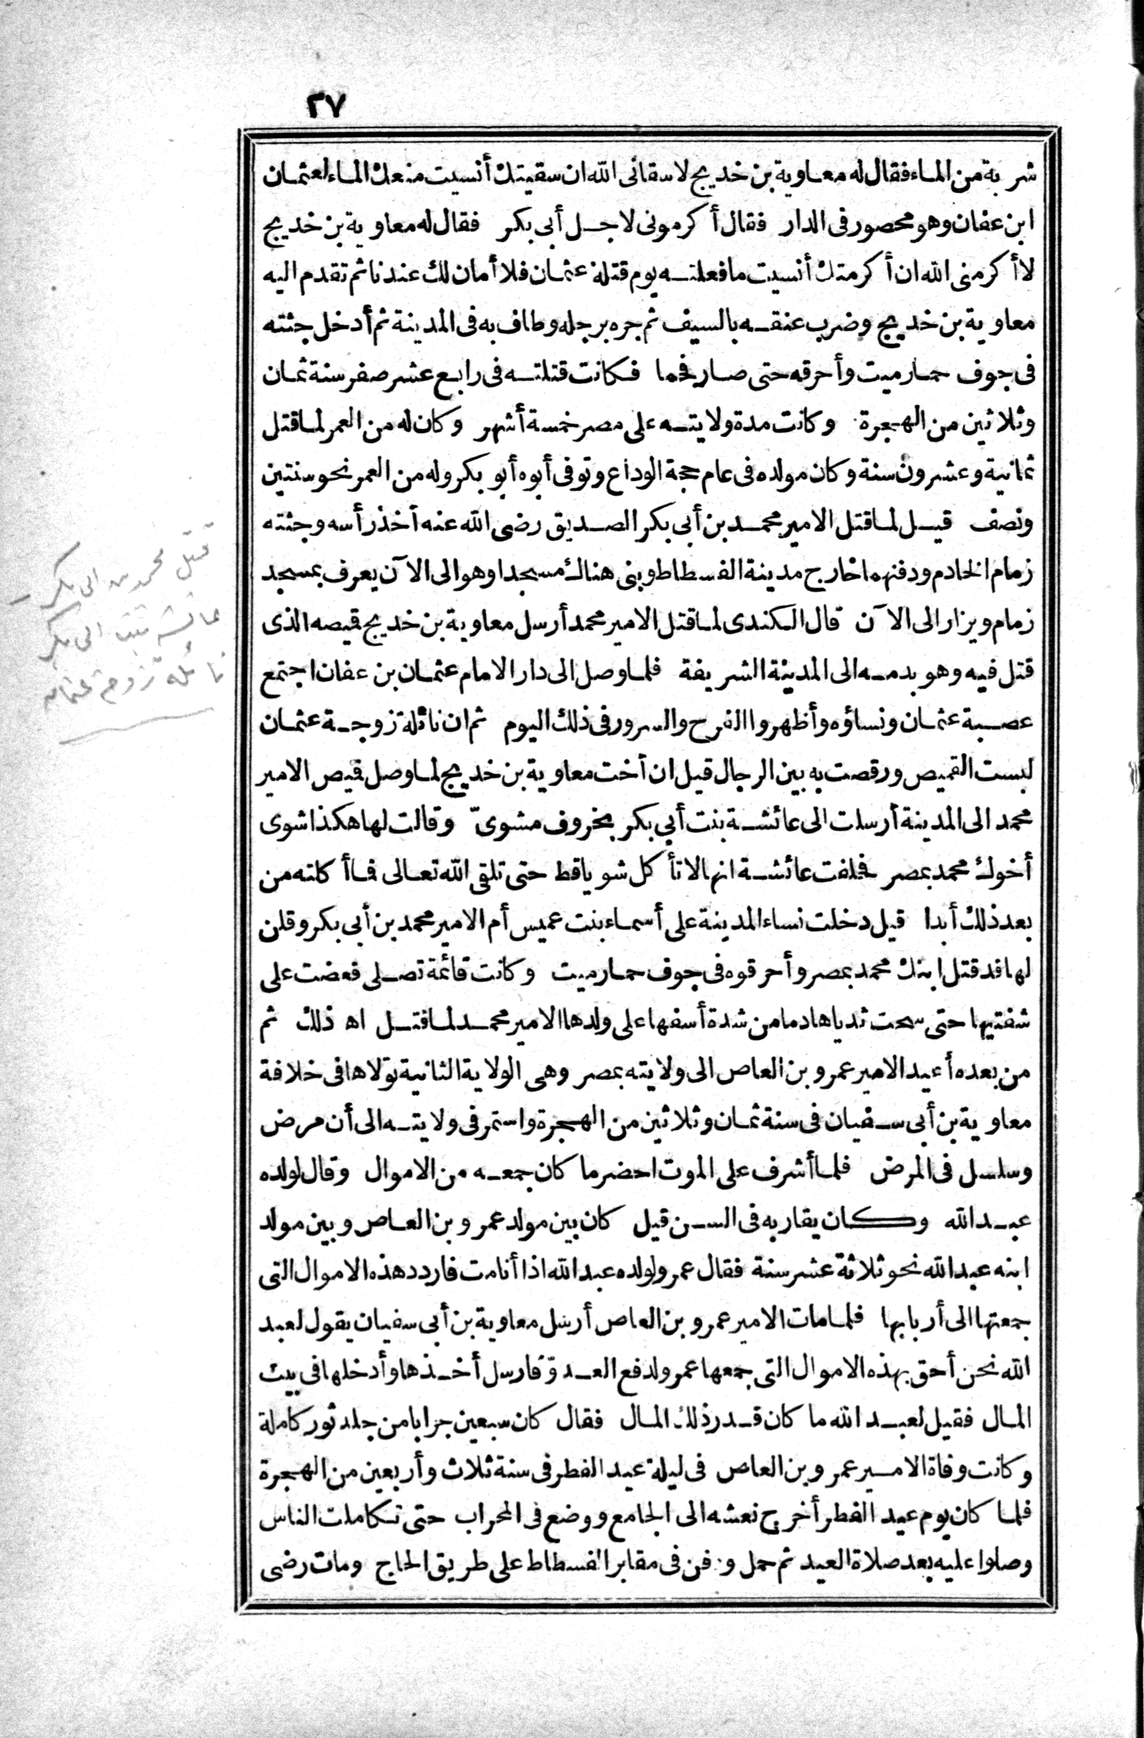 ٢٧
شربة من الماء فقال له معاوية بن خديج لا سقانى الله ان سقيتك أنسيت منعك الماء لعثمان
ابن عفان وهو محصور فى الدار فقال أكرمونى لاجل أبى بكر فقال له معاوية بن خديج
لا أكرمنى الله ان أكرمتك أنسيت ما فعلته يوم قتلة عثمان فلا أمان لك عندنا ثم تقدم اليه
معاوية بن خديج وضرب عنقه بالسيف ثم جره برجله وطاف به فى المدينة ثم أدخل جثته
فى جوف حمار ميت وأحرقه حتى صار فحما فكانت قتلته فى رابع عشر صفر سنة ثمان
وثلاثين من الهجرة وكانت مدة ولايته على مصر خمسة أشهر وكان له من العمر لما قتل
ثمانية وعشرون سنة وكان مولده فى عام حجة الوداع وتوفى أبوه أبو بكر وله من العمر نحو سنتين
ونصف قيل لما قتل الامير محمد بن أبى بكر الصديق رضى الله عنه أخذ رأسه وجثته
زمام الخادم ودفنهما خارج مدينة الفسطاط وبنى هناك مسجدا وهو الى الآن يعرف بمسجد
زمام ويزار الى الآن قال الكندى لما قتل الامير محمد أرسل معاوية بن خديج قميصه الذى
قتل فيه وهو بدمه الى المدينة الشريفة فلما وصل الى دار الامام عثمان بن عفان اجتمع
عصبة عثمان ونساؤه وأظهروا الفرح والسرور فى ذلك اليوم ثم ان نائلة زوجة عثمان
لبست القميص ورقصت به بين الرجال قيل ان أخت معاوية بن خديج لما وصل قميص الامير
محمد الى المدينة أرسلت الى عائشة بنت أبى بكر بخروف مشوىّ وقالت لها هكذا شوى
أخوك محمد بمصر فحلفت عائشة انها لا تأكل شويا قط حتى تلقى الله تعالى فما أكلته من
بعد ذلك أبدا قيل دخلت نساء المدينة على أسماء بنت عميس أم الامير محمد بن أبى بكر وقلن
لها قد قتل ابنك محمد بمصر وأحرقوه فى جوف حمار ميت وكانت قائمة تصلى فعضت على
شفتيها حتى سحت ثدياها دما من شدة أسفها على ولدها الامير محمد لما قتل اه ذلك ثم
من بعده أعيد الامير عمرو بن العاص الى ولايته بمصر وهى الولاية الثانية تولاها فى خلافة
معاوية بن أبى سفيان فى سنة ثمان وثلاثين من الهجرة واستمر فى ولايته الى أن مرض
وسلسل فى المرض فلما أشرف على الموت احضر ما كان جمعه من الاموال وقال لولده
عبد الله وكان يقاربه فى السن قيل كان بين مولد عمرو بن العاص وبين مولد
ابنه عبد الله نحو ثلاثة عشر سنة فقال عمرو لولده عبد الله اذا أنا مت فاردد هذه الاموال التى
جمعتها الى أربابها فلما مات الامير عمرو بن العاص أرسل معاوية بن أبى سفيان يقول لعبد
الله نحن أحق بهذه الاموال التى جمعها عمرو لدفع العدوّ فارسل أخذها وأدخلها فى بيت
المال فقيل لعبد الله ما كان قدر ذلك المال فقال كان سبعين جرابا من جلد ثور كاملة
وكانت وفاة الامير عمرو بن العاص فى ليلة عيد الفطر فى سنة ثلاث وأربعين من الهجرة
فلما كان يوم عيد الفطر أخرج نعشه الى الجامع ووضع فى المحراب حتى تكاملت الناس
وصلوا عليه بعد صلاة العيد ثم حمل ودفن فى مقابر الفسطاط على طريق الحاج ومات رضى
قتل محمد بن ابى بكر
عائشة بنت ابى بكر
نائلة زوجة عثمان